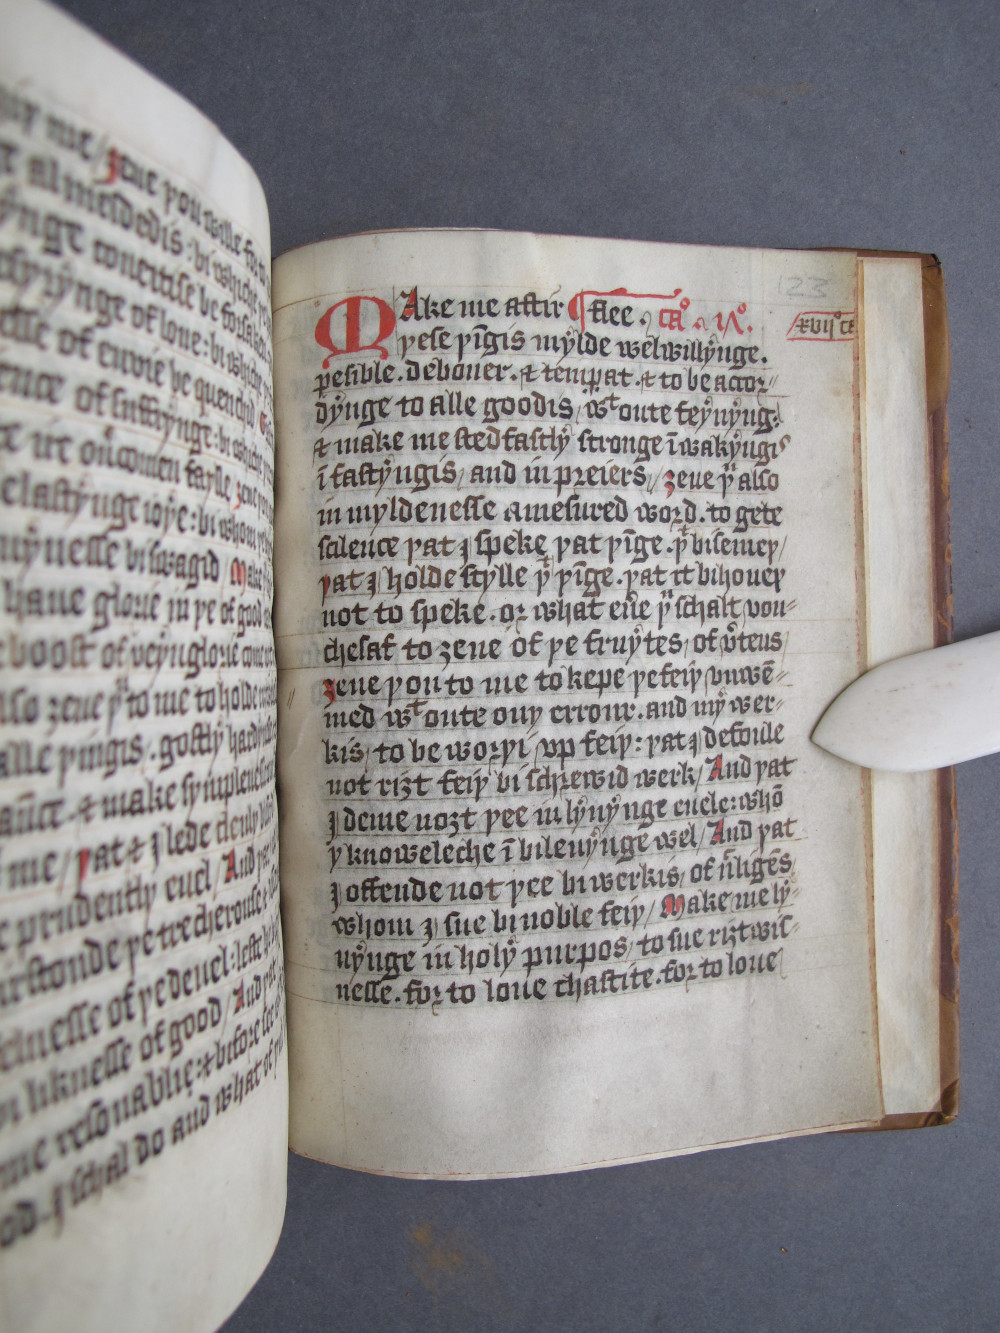 me / ȝeue þou
almesdedis : bi whiche
ynge coueitise be forsaken
of loue : bi whiche
of enuie be quenchid
ence of suffrynge : bi whiche
ouercomen fayle ȝeue
elastynge ioye : bi whom
ynesse biswagid Make
haue glorie in þe of good
boost of veynglorie come
also ȝeue þu to me to holde
alle þingis . gostly
& make symplenesse
me / þat & I lede
prudently euel / And
stonde þe trecherouse
elnesse of þe deuel : leste
liknesse of good / And þat
me resonablie : & bifore se
od . I schal do and what of
123
Make me aftir ¶ flee . cao . ix o .
xviio ca
þese þīgis mylde welwillynge .
pesible . debouer . & temperat . & to be acor〃
dynge to alle goodis / wt oute feynyng .
& make me stedfastly stronge ī wakyngis
ī fastyngis / and in preiers / ȝeue þu also
in myldenesse a mesured word . to gete
scilence þat I speke þat þīge . þt bisemeþ /
þat I holde stylle þt þīge . þat it bihoueþ
not to speke . or what eue þu schalt vou〃
chesaf to ȝeue of þe fruytes / of vteus /
ȝeue þou to me to kepe þe feiþ / vnwē〃
med wt oute ony errour . and my wer-
kis / to be worþi / vp feiþ : þat I defoule
not riȝt feiþ bi schrewid werk / And þat
I deme noȝt þee in lyuynge euele : whō
y knoweleche ī bileuynge wel / And þat
I offende not þee bi werkis / of n̄ligēs /
whom I sue bi noble feiþ / Make me ly-
uynge in holy purpos / to sue riȝtwis-
nesse . for to loue chastite . for to loue